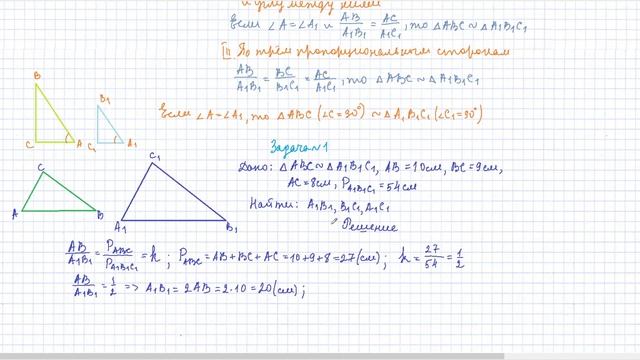 и углу между ними
Если ∠A = ∠A₁ и AB/A₁B₁ = AC/A₁C₁, то △ABC ∾ △A₁B₁C₁
III. По трём пропорциональным сторонам
AB/A₁B₁ = BC/B₁C₁ = AC/A₁C₁, то △ABC ∾ △A₁B₁C₁
Если ∠A = ∠A₁, то △ABC (∠C = 90°) ∾ △A₁B₁C₁ (∠C₁ = 90°)
B
C
A
B₁
C₁
A₁
Задача №1
Дано: △ABC ∾ △A₁B₁C₁, AB = 10см, BC = 9см,
AC = 8см, P A₁B₁C₁ = 54см
Найти: A₁B₁, B₁C₁, A₁C₁
Решение
C
A
B
C₁
A₁
B₁
AB/A₁B₁ = P ABC/P A₁B₁C₁ = k; P ABC = AB + BC + AC = 10 + 9 + 8 = 27 (см); k = 27/54 = 1/2
AB/A₁B₁ = 1/2 => A₁B₁ = 2AB = 2·10 = 20 (см);